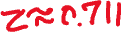 z≈0.711